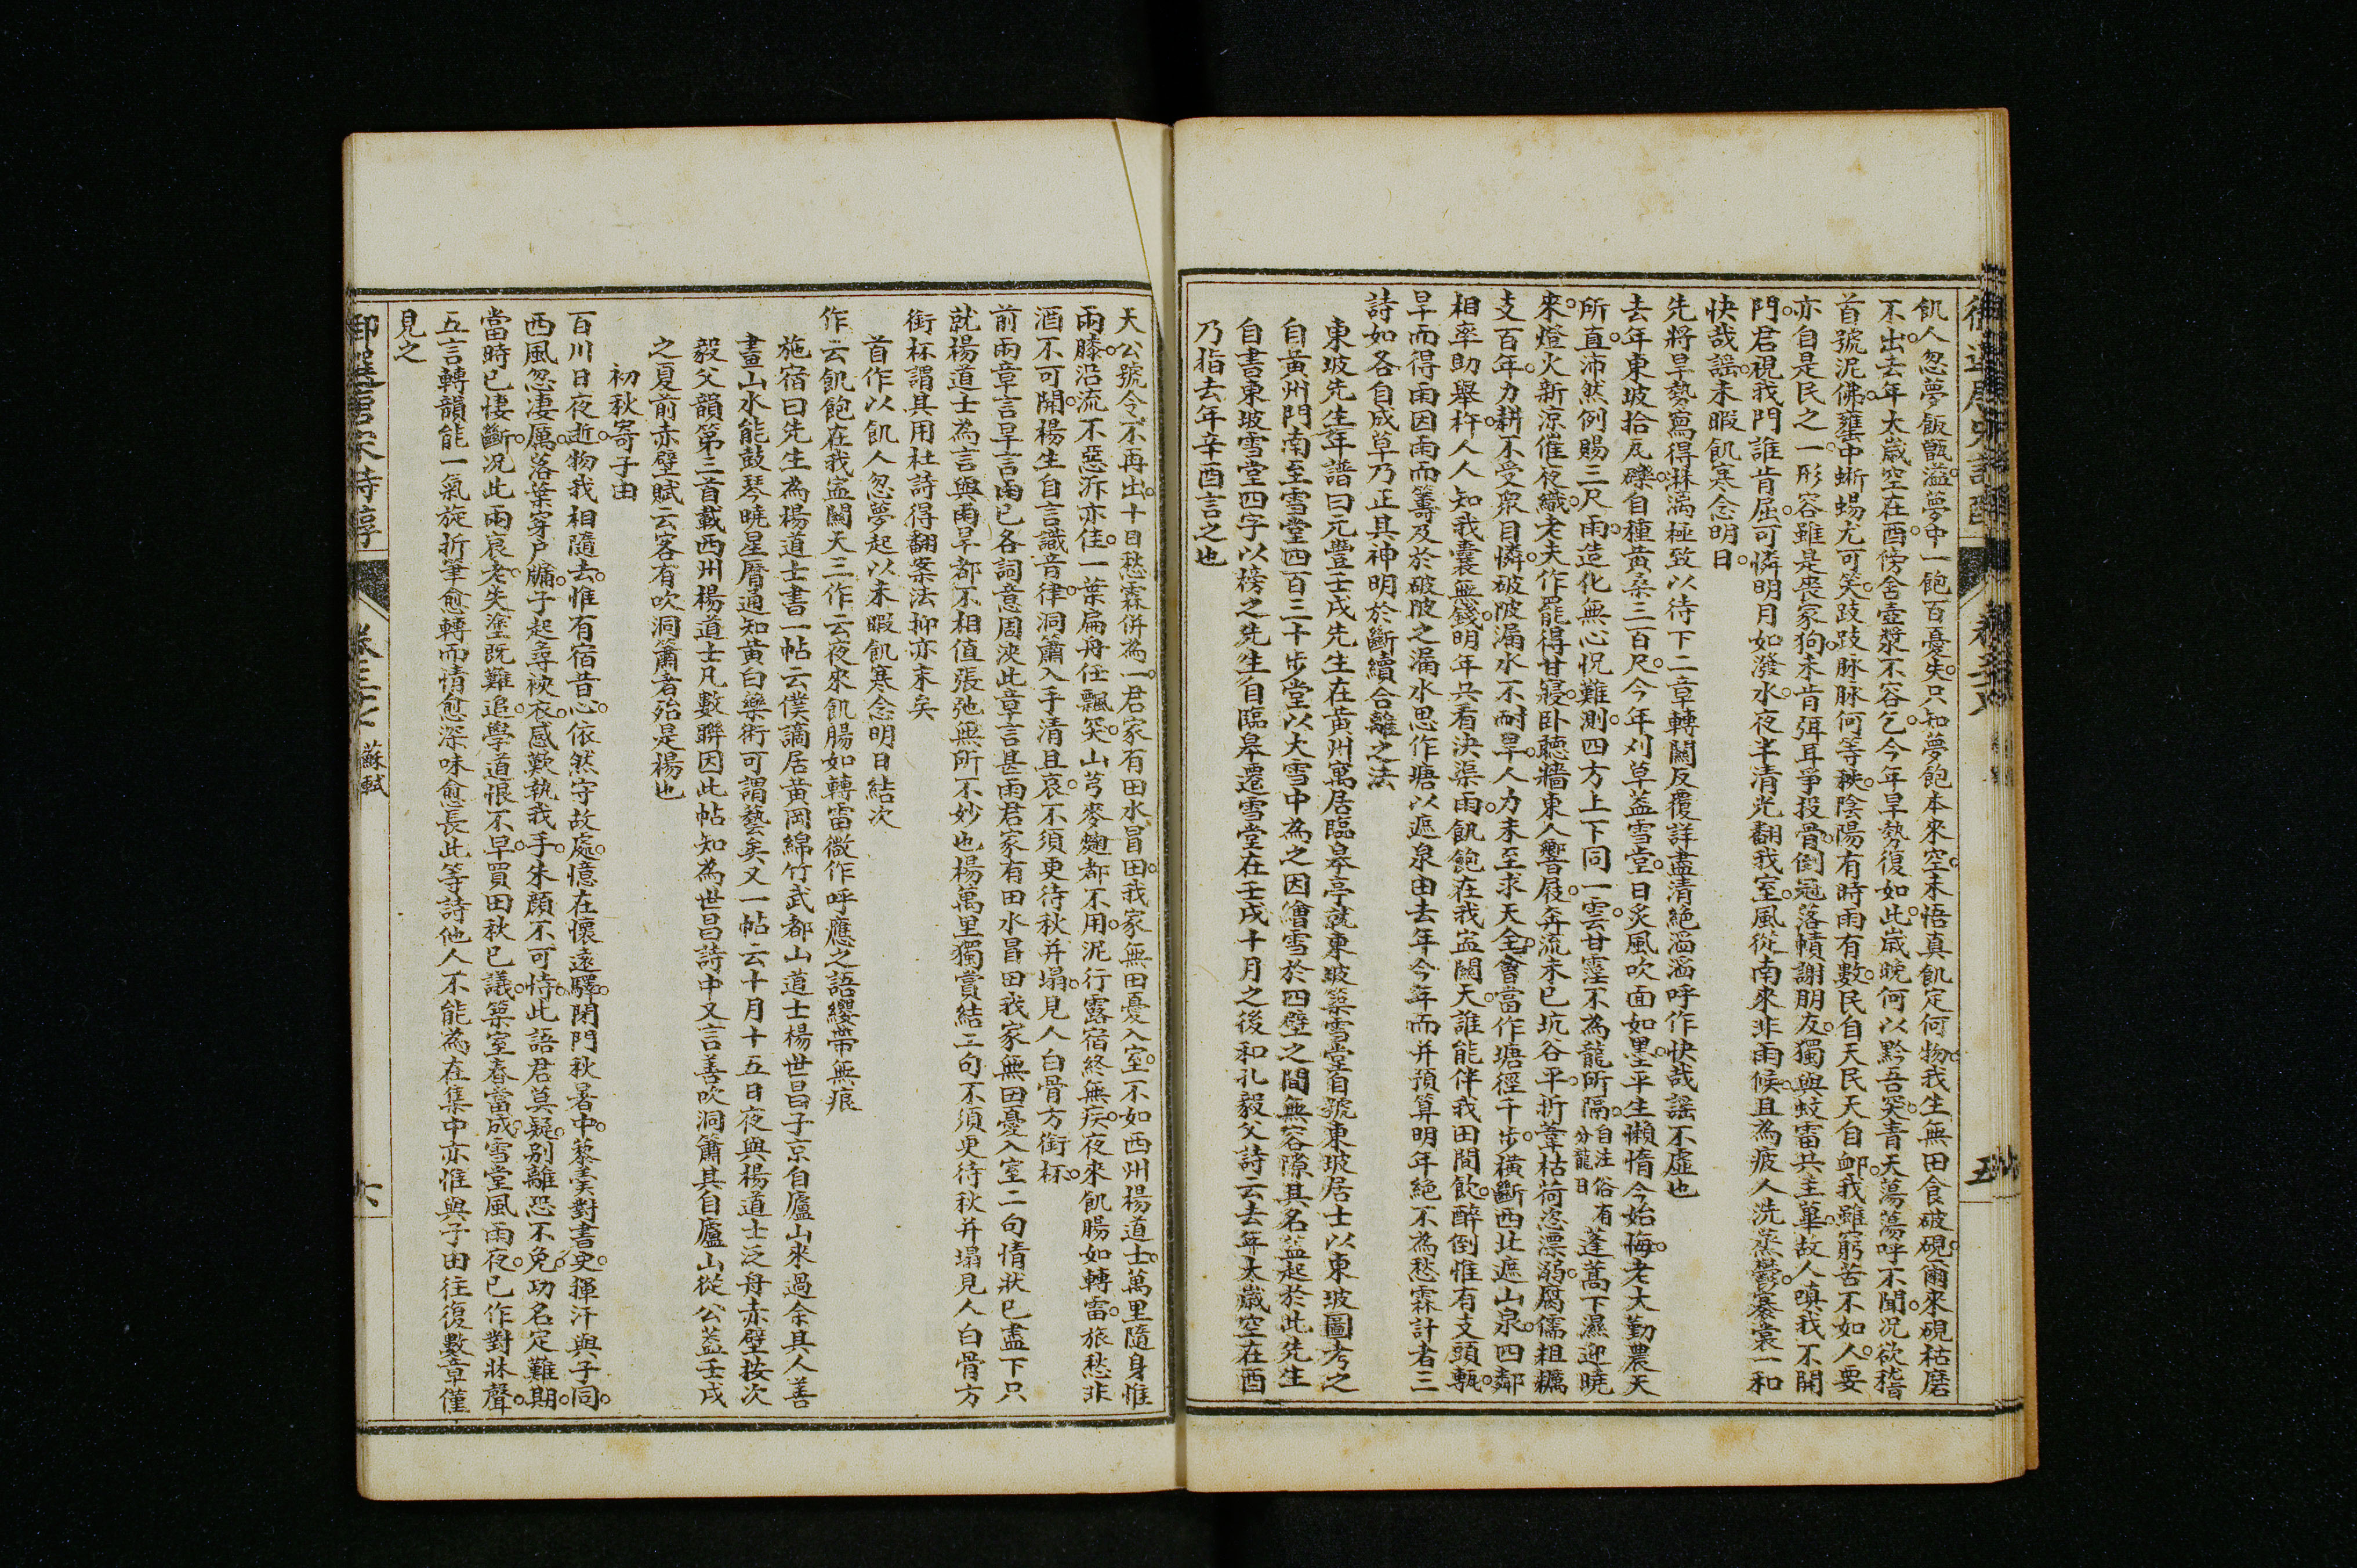 飢人忽夢飯甑溢夢中一飽百憂失只知夢飽本來空未悟真飢定何物我生無田食破硯爾來硯枯磨
不出去年太歲空在酉傍舍壺漿不容乞今年旱勢復如此歲晚何以黔吾突青天蕩蕩呼不聞況欲稽
首號泥佛甕中蜥蜴尤可笑跂跂脉脉何等秩陰陽有時雨有數民自天民天自䘏我雖窮苦不如人要
亦自是民之一形容雖是喪家狗未肯弭耳爭投骨倒冠落幘謝朋友獨與蚊雷共圭蓽故人嗔我不開
門君視我門誰肯屈可憐明月如潑水夜半清光翻我室風從南來非雨候且為疲人洗蒸鬱褰裳一和
快哉謠未暇飢寒念明日
先將旱勢寫得淋漓極致以待下二章轉關反覆詳盡清絶滔滔呼作快哉謠不虛也
去年東坡拾瓦礫自種黃桑三百尺今年刈草蓋雪堂日炙風吹面如墨平生懶惰今始悔老大勤農天
所直沛然例賜三尺雨造化無心怳難測四方上下同一雲甘霔不為龍所隔自注俗有分龍日蓬蒿下濕迎曉
來燈火新涼催夜織老夫作罷得甘寢卧聽牆東人響屐奔流未已坑谷平折葦枯荷恣漂溺腐儒粗糲
支百年力耕不受衆目憐破陂漏水不耐旱人力未至求天全會當作塘徑千步橫斷西北遮山泉四鄰
相率助舉杵人人知我囊無錢明年共看決渠雨飢飽在我寧關天誰能伴我田間飲醉倒惟有支頭甎
旱而得雨因雨而籌及於破陂之漏水思作塘以遮泉由去年今年而并預算明年絶不為愁霖計者三
詩如各自成草乃正其神明於斷續合離之法
東坡先生年譜曰元豐壬戌先生在黃州寓居臨皋亭就東坡築雪堂自號東坡居士以東坡圖考之
自黃州門南至雪堂四百三十步堂以大雪中為之因繪雪於四壁之間無容隙其名蓋起於此先生
自書東坡雪堂四字以榜之先生自臨皋遷雪堂在壬戌十月之後和孔毅父詩云去年太歲空在酉
乃指去年辛酉言之也
天公號令不再出十日愁霖併為一君家有田水冒田我家無田憂入室不如西州楊道士萬里隨身惟
兩膝沿流不惡泝亦佳一葉扁舟任飄突山芎麥麴都不用泥行露宿終無疾夜來飢腸如轉雷旅愁非
酒不可開楊生自言識音律洞簫入手清且哀不須更待秋井塌見人白骨方銜杯
前兩章言旱言雨已各詞意周浹此章言甚雨君家有田水冒田我家無田憂入室二句情狀已盡下只
就楊道士為言與雨旱都不相值張弛無所不妙也楊萬里獨賞結二句不須更待秋井塌見人白骨方
銜杯謂其用杜詩得翻案法抑亦末矣
首作以飢人忽夢起以未暇飢寒念明日結次
作云飢飽在我寧關天三作云夜來飢腸如轉雷微作呼應之語纓帶無痕
施宿曰先生為楊道士書一帖云僕謫居黃岡綿竹武都山道士楊世昌子京自廬山來過余其人善
畫山水能鼓琴曉星曆通知黃白藥術可謂藝矣又一帖云十月十五日夜與楊道士泛舟赤壁按次
毅父韻第三首載西州楊道士凡數聨因此帖知為世昌詩中又言善吹洞簫其自廬山從公蓋壬戌
之夏前赤壁賦云客有吹洞簫者殆是楊也
初秋寄子由
百川日夜逝物我相隨去惟有宿昔心依然守故處憶在懷遠驛閉門秋暑中藜羹對書史揮汗與子同
西風忽凄厲落葉穿戶牖子起尋裌衣感歎執我手朱顏不可恃此語君莫疑別離恐不免功名定難期
當時已悽斷況此兩衰老失塗既難追學道恨不早買田秋已議築室春當成雪堂風雨夜已作對牀聲
五言轉韻能一氣旋折筆愈轉而情愈深味愈長此等詩他人不能為在集中亦惟與子由往復數章僅
見之
御選唐宋詩醇 卷三十八 蘇軾 六